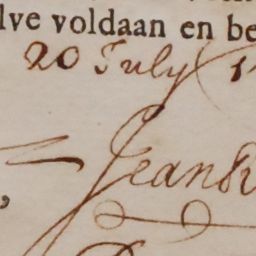 lve voldaan en be
20 July 1
Jean